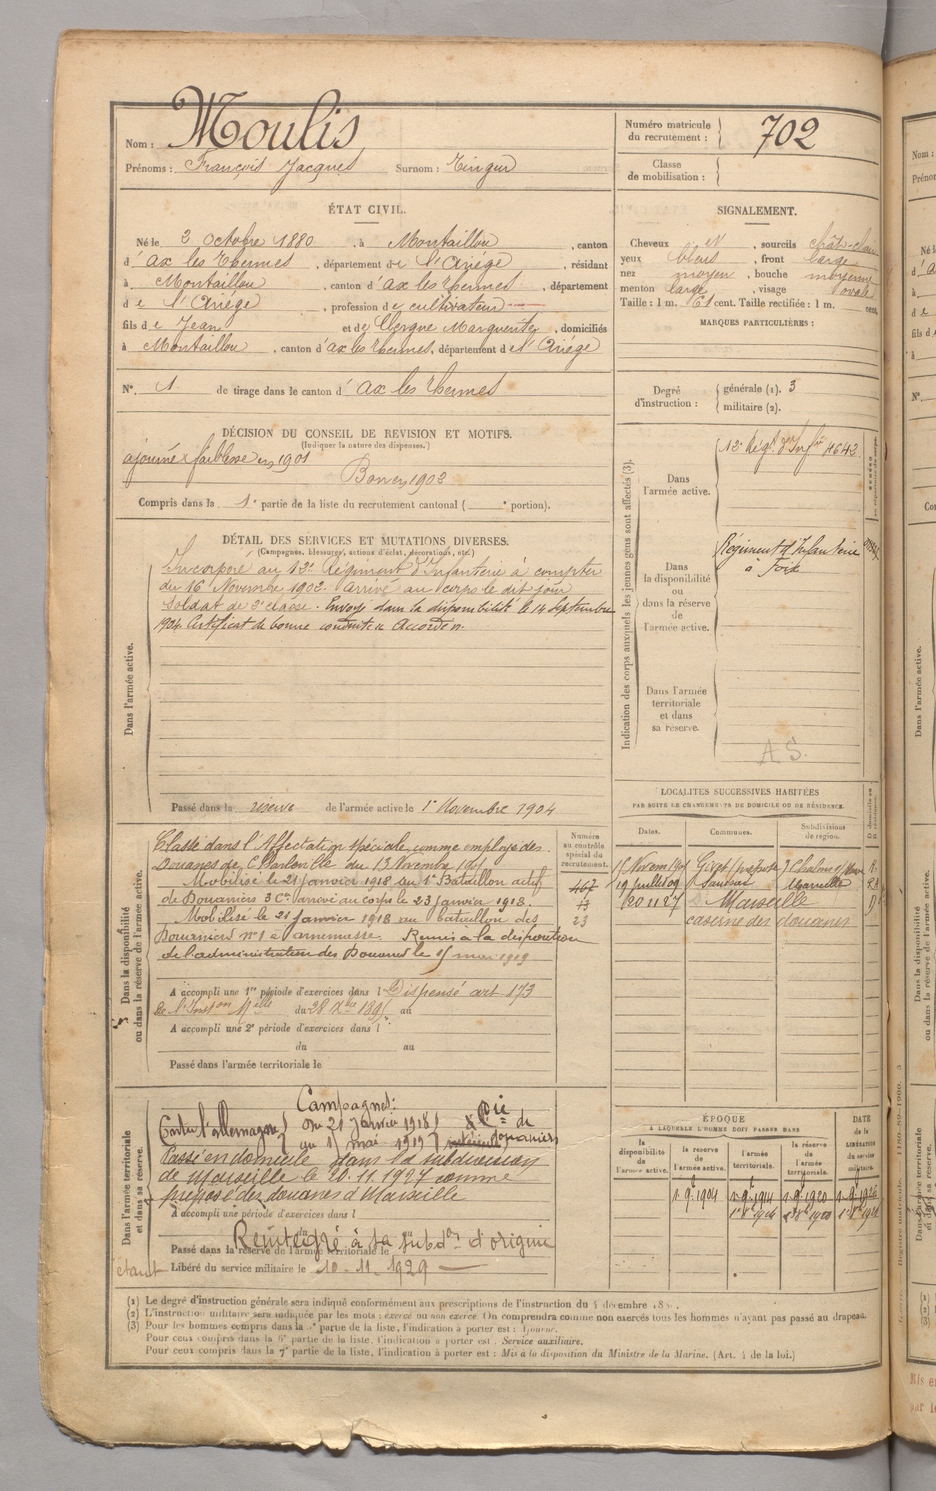 Nom : Moulis
Prénoms : François Jacques Surnom :
Numéro matricule du recrutement : 702
Classe de mobilisation :
ÉTAT CIVIL.
Né le 2 Octobre 1880, à Montaillou, canton
d'ax les Thermes, département de l'Ariége, résidant
à Montaillou, canton d'ax les Thermes, département
de l'Ariége, profession de cultivateur
fils de Jean et de Clergue Marguerite, domiciliés
à Montaillou, canton d'ax les Thermes, département de l'Ariége
N° 1 de tirage dans le canton d'ax les Thermes
SIGNALEMENT.
Cheveux et, sourcils châts-clairs
yeux bleus, front large
nez moyen, bouche moyenne
menton large, visage ovale
Taille : 1 m. 61 cent. Taille rectifiée : 1 m. cent.
MARQUES PARTICULIÈRES :
Degré d'instruction : générale (1). 3
militaire (2).
DÉCISION DU CONSEIL DE REVISION ET MOTIFS.
(Indiquer la nature des dispenses.)
ajourné faiblesse en 1901
Bon en 1902
Compris dans la 1e partie de la liste du recrutement cantonal ( e portion).
DÉTAIL DES SERVICES ET MUTATIONS DIVERSES.
(Campagnes, blessures, actions d'éclat, décorations, etc.)
Dans l'armée active.
Incorporé au 12e Régiment d'Infanterie à compter
du 16 Novembre 1902. Arrivé au corps le dit jour
Soldat de 2e classe. Envoyé dans la disponibilité le 14 Septembre
1904. Certificat de bonne conduite Accordé.
Passé dans la réserve de l'armée active le 1er Novembre 1904
Indication des corps auxquels les jeunes gens sont affectés (3).
Dans l'armée active.
12e Régt d'Infrie
Dans la disponibilité ou dans la réserve de l'armée active.
Régiment d'Infanterie
à Foix
Dans l'armée territoriale et dans sa réserve.
A S.
Dans la disponibilité ou dans la réserve de l'armée active.
Classé dans l'Affectation Spéciale comme employé des
Douanes de Charleville du 13 Novembre
Mobilisé le 21 janvier 1918 au 1er Bataillon actif
de Douaniers 3 Cie Arrivé au corps le 23 janvier 1918.
Mobilisé le 21 janvier 1918 au bataillon des
Douaniers n°1 à annemasse. Remis à la disposition
de l'administration des Douanes le 1er mai 1919
A accompli une 1re période d'exercices dans l Dispensé art 173
de l'Inston Melle du 28 Xbre 1895 au
A accompli une 2e période d'exercices dans l
du au
Passé dans l'armée territoriale le
Numéro au contrôle spécial du recrutement.
467
13
23
LOCALITÉS SUCCESSIVES HABITÉES
PAR SUITE DE CHANGEMENTS DE DOMICILE OU DE RÉSIDENCE.
Dates. Communes. Subdivisions de région.
19 juillet 09 Marseille
20 11 27 Marseille
caserne des douanes
Dans l'armée territoriale et dans sa réserve.
Campagnes :
Contre l'allemagne du 21 Janvier 1918
au 1er mai 1919 Cie de douaniers
Passé en domicile dans la subdivision
de Marseille le 20.11.1927 comme
préposé des douanes à Marseille
A accompli une période d'exercices dans l
Réintégré à sa subdon d'origine
Passé dans la réserve de l'armée territoriale le
Libéré du service militaire le 10-11-1929
ÉPOQUE
À LAQUELLE L'HOMME DOIT PASSER DANS
la disponibilité de l'armée active.
la réserve de l'armée active.
l'armée territoriale.
la réserve de l'armée territoriale.
DATE de la LIBÉRATION du service militaire.
(1) Le degré d'instruction générale sera indiqué conformément aux prescriptions de l'instruction du 4 décembre
(2) L'instruction militaire sera indiquée par les mots : exercé ou non exercé. On comprendra comme non exercés tous les hommes n'ayant pas passé au drapeau.
(3) Pour les hommes compris dans la partie de la liste, l'indication à porter est : Ajourné.
Pour ceux compris dans la 6e partie de la liste, l'indication à porter est : Service auxiliaire.
Pour ceux compris dans la 7e partie de la liste, l'indication à porter est : Mis à la disposition du Ministre de la Marine. (Art. 4 de la loi.)